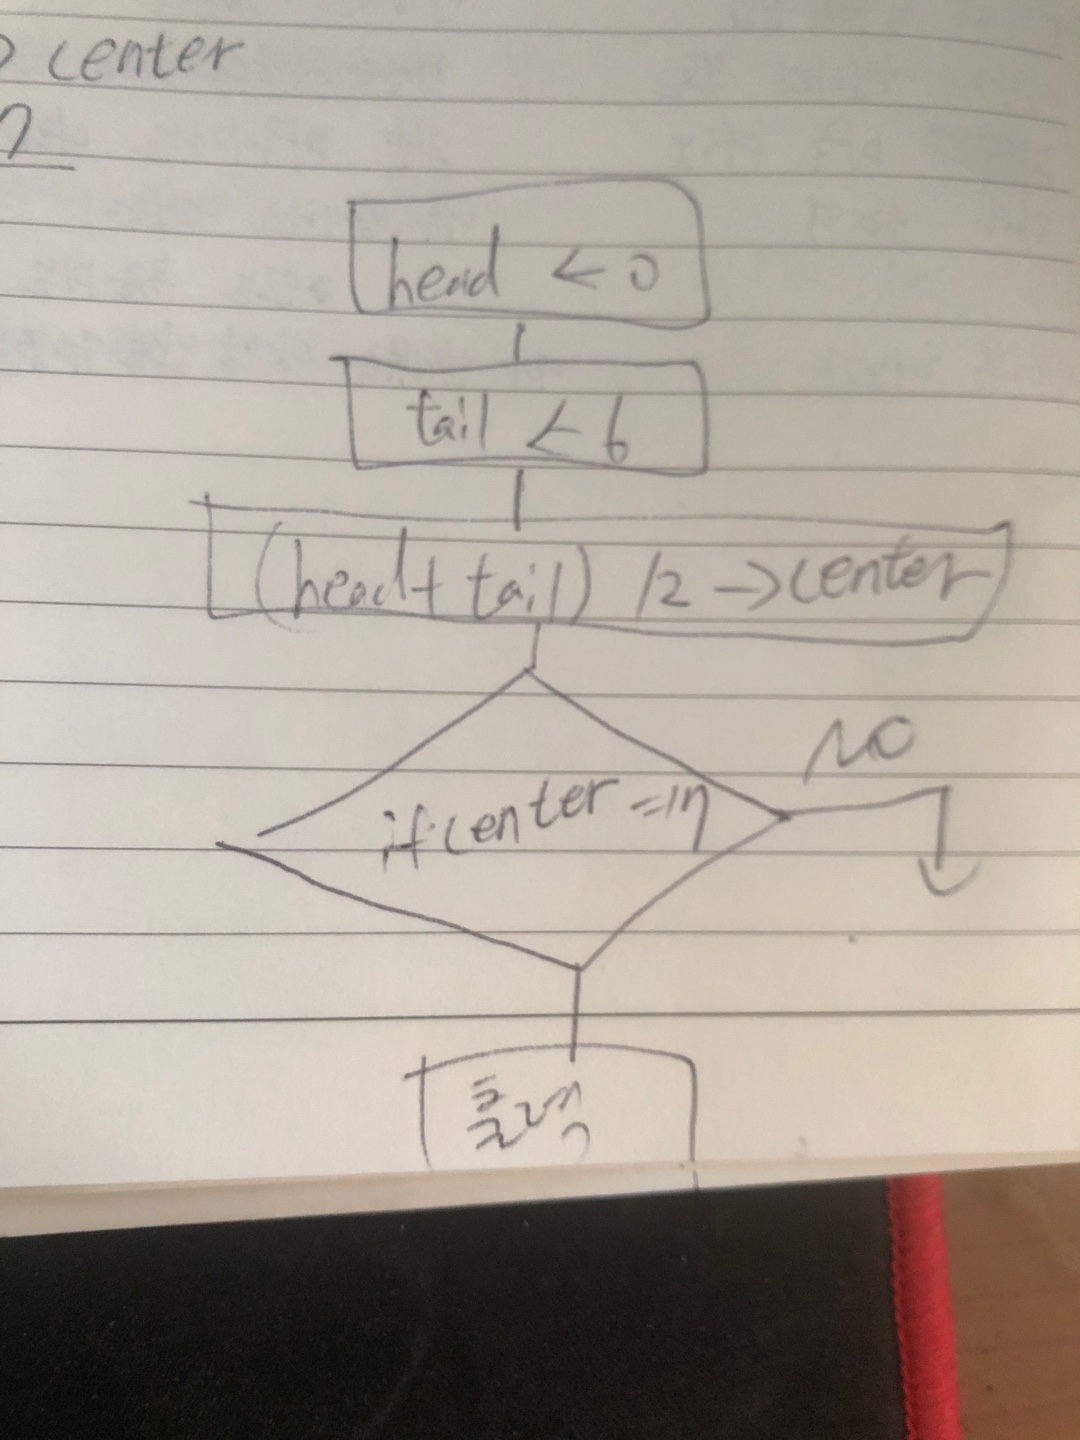 center
head ← 0
tail ← 6
(head + tail) /2 → center
NO
if center = 17
출력